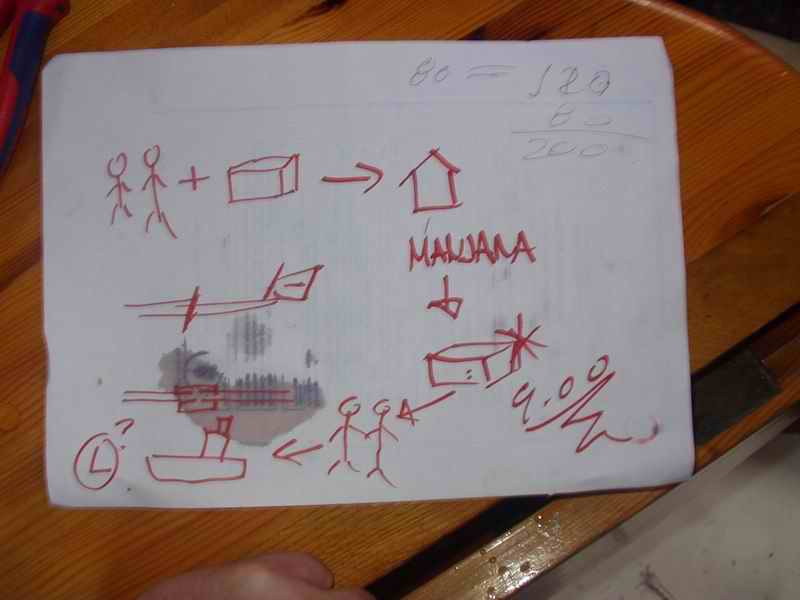 80 = 120
80
200
+
MAÑJANA
9.00
L?